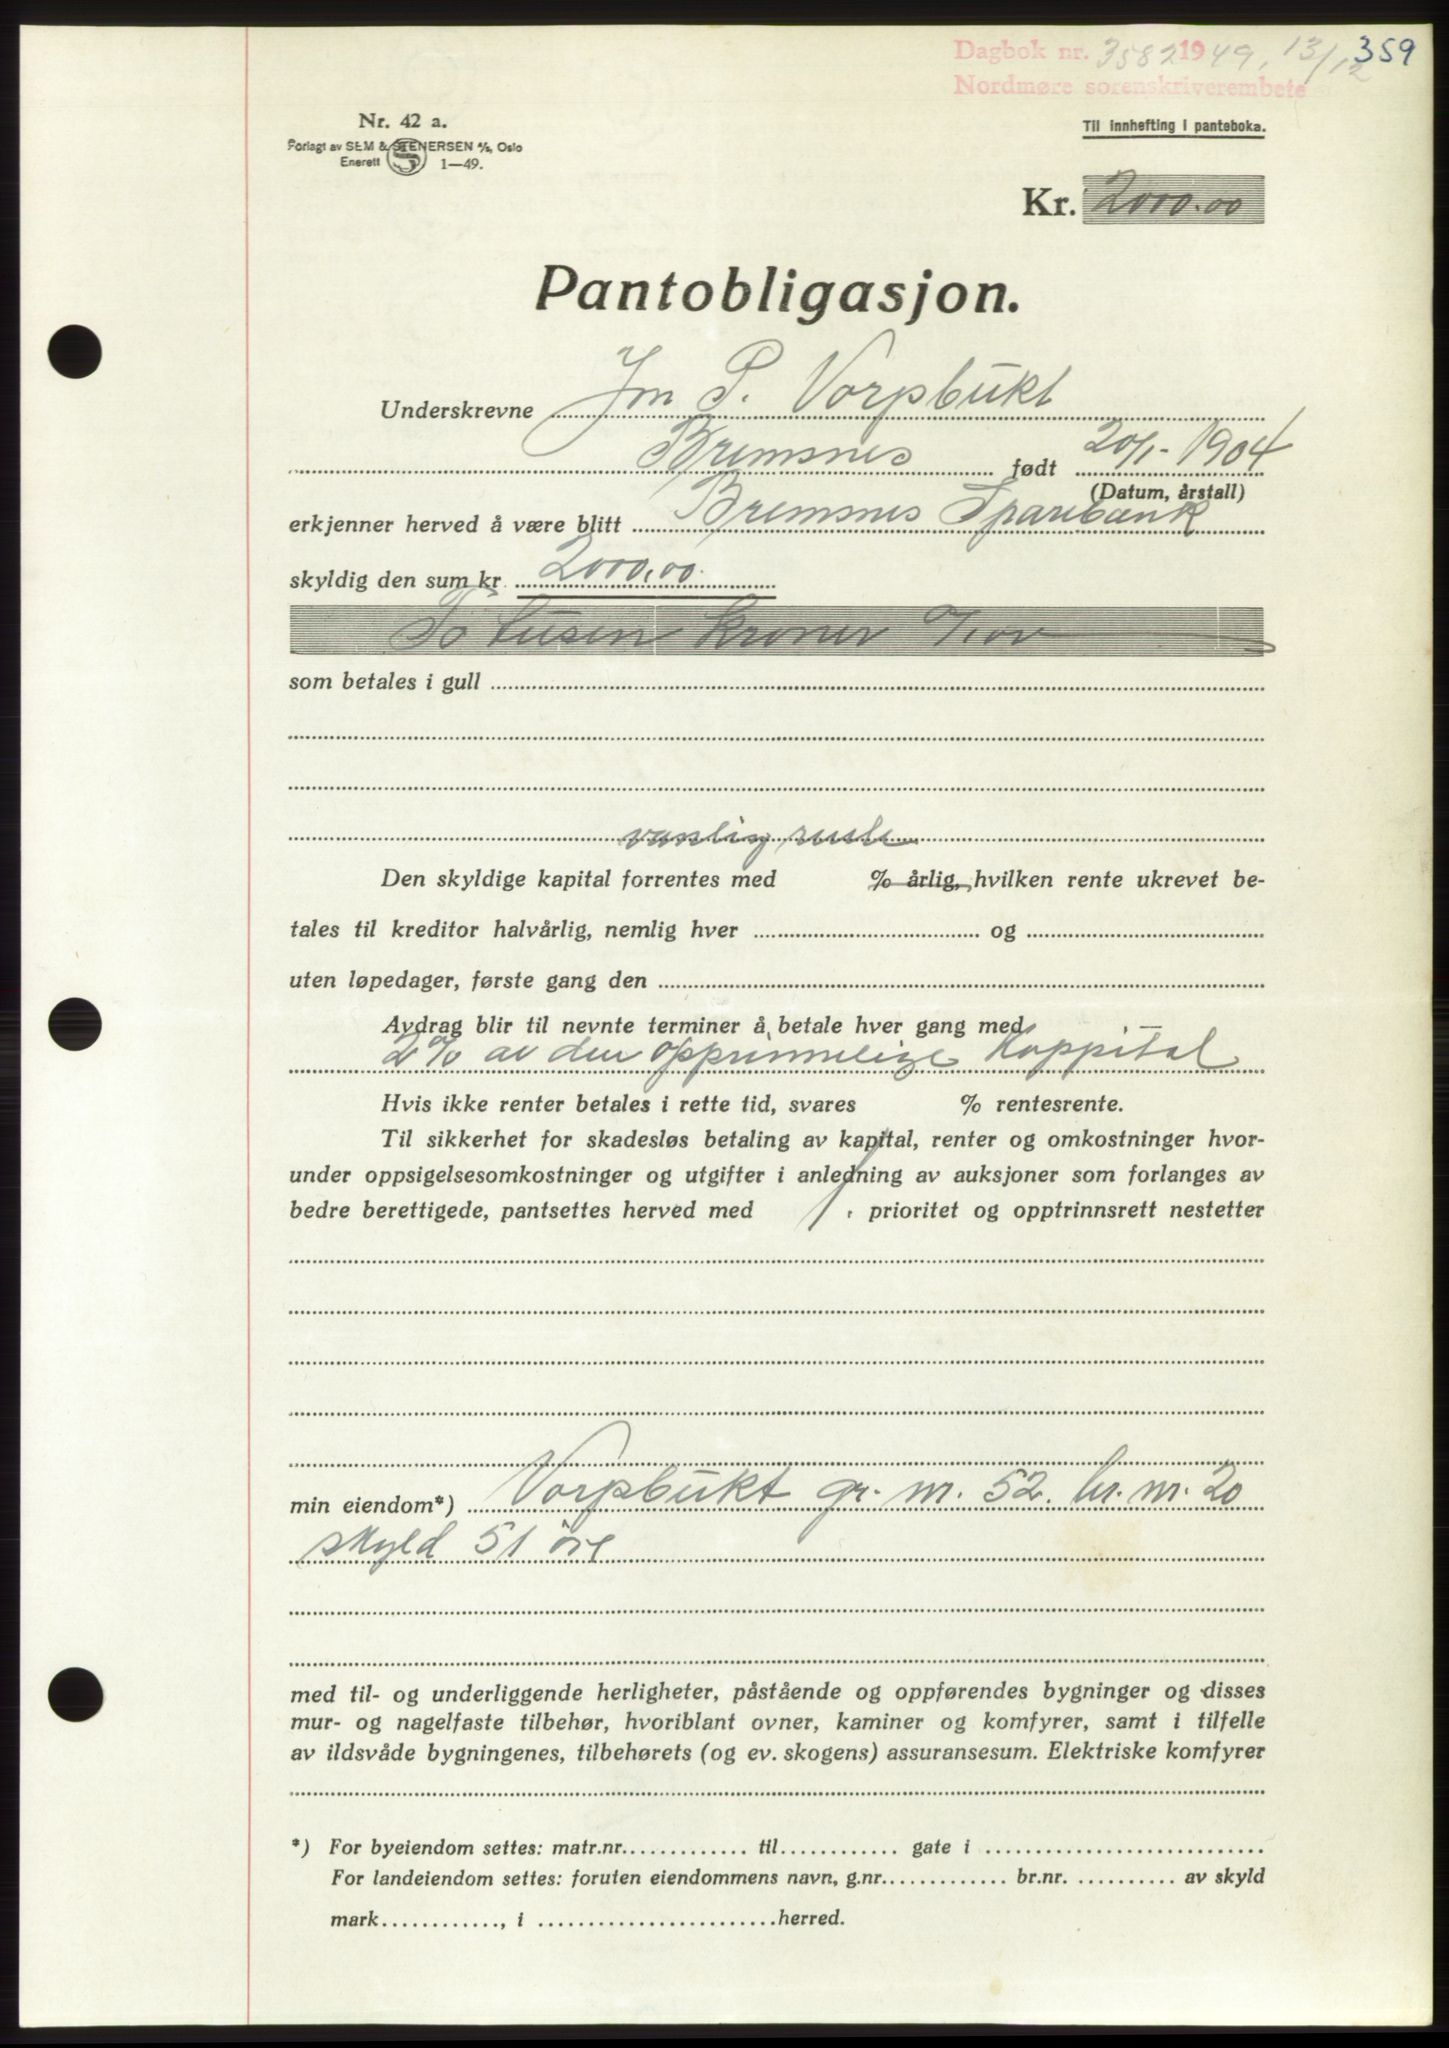 Dagbok nr. 3582 1949, 13/12 359
Nordmøre sorenskriverembete
Nr. 42 a.
Forlagt av SEM & STENERSEN A/S, Oslo
Enerett 1—49.
Til innhefting i panteboka.
Kr. 2000.00
Pantobligasjon.
Underskrevne Jon P. Vorpbukt
Bremsnes født 20/1-1904
(Datum, årstall)
erkjenner herved å være blitt Bremsnes Sparebank
skyldig den sum kr. 2000.00
To tusen kroner
som betales i gull
vanlig rente
Den skyldige kapital forrentes med % årlig, hvilken rente ukrevet be-
tales til kreditor halvårlig, nemlig hver og
uten løpedager, første gang den
Avdrag blir til nevnte terminer å betale hver gang med
2% av den opprinnelige Kappital
Hvis ikke renter betales i rette tid, svares % rentesrente.
Til sikkerhet for skadesløs betaling av kapital, renter og omkostninger hvor-
under oppsigelsesomkostninger og utgifter i anledning av auksjoner som forlanges av
bedre berettigede, pantsettes herved med 1. prioritet og opptrinnsrett nestetter
min eiendom*) Vorpbukt gr. nr. 52. br. nr. 20
skyld 51 øre
med til- og underliggende herligheter, påstående og oppførendes bygninger og disses
mur- og nagelfaste tilbehør, hvoriblant ovner, kaminer og komfyrer, samt i tilfelle
av ildsvåde bygningenes, tilbehørets (og ev. skogens) assuransesum. Elektriske komfyrer
*) For byeiendom settes: matr.nr. til gate i
For landeiendom settes: foruten eiendommens navn, g.nr. br.nr. av skyld
mark , i herred.